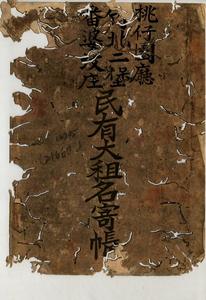 桃仔園廳
竹北二堡
番婆坟庄
民有大租名寄帳